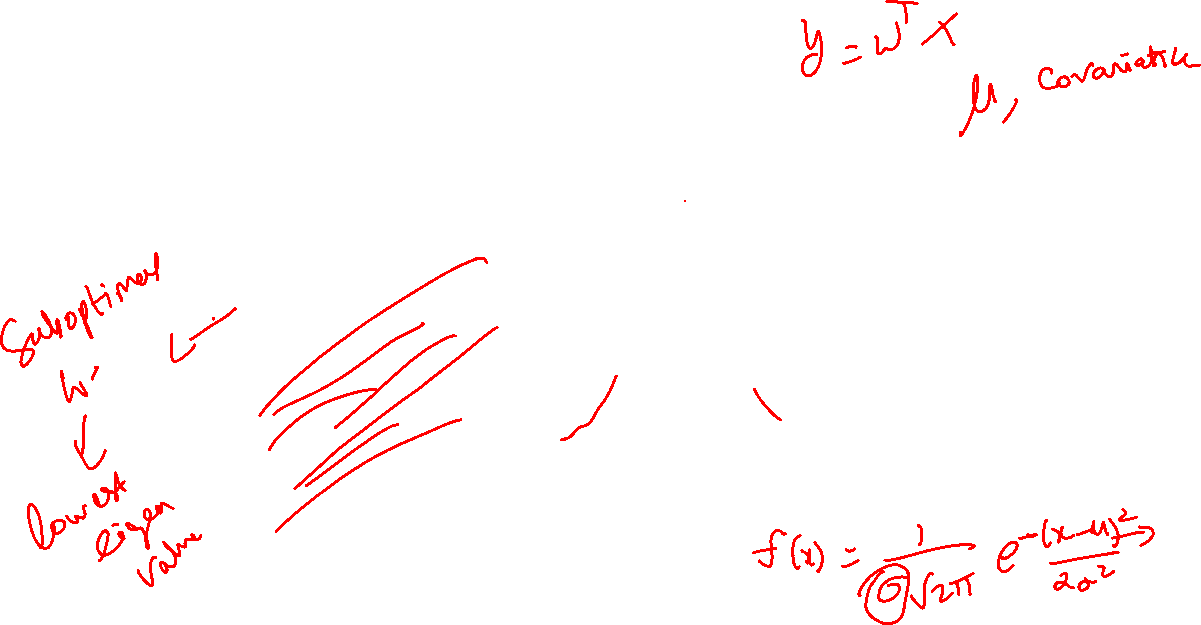 y = w^T x
μ, covariatie
Suboptimal
w'
lowest
eigen
value
f(x) = 1/(σ√2π) e^(-(x-μ)^2/2σ^2)